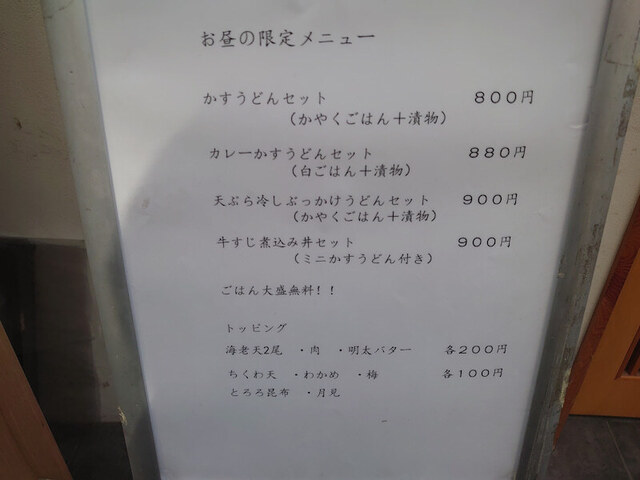 お昼の限定メニュー
かすうどんセット ８００円
（かやくごはん＋漬物）
カレーかすうどんセット ８８０円
（白ごはん＋漬物）
天ぷら冷しぶっかけうどんセット ９００円
（かやくごはん＋漬物）
牛すじ煮込み丼セット ９００円
（ミニかすうどん付き）
ごはん大盛無料！！
トッピング
海老天2尾 ・肉 ・明太バター 各２００円
ちくわ天 ・わかめ ・梅 各１００円
とろろ昆布 ・月見